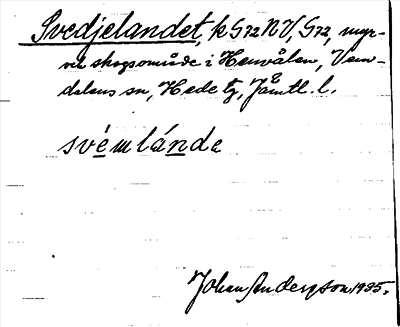 Svedjelandet, k G22 NV, G22, myr-
och skogsområde i Henvålen, Vem-
dalens sn, Hede tg, Jämtl. l.
svémlánde
Johan Anderzon 1935.